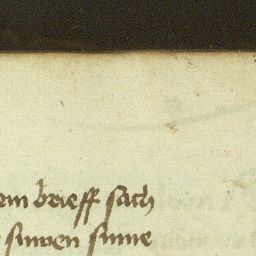 em brieff sach
sinven sinne